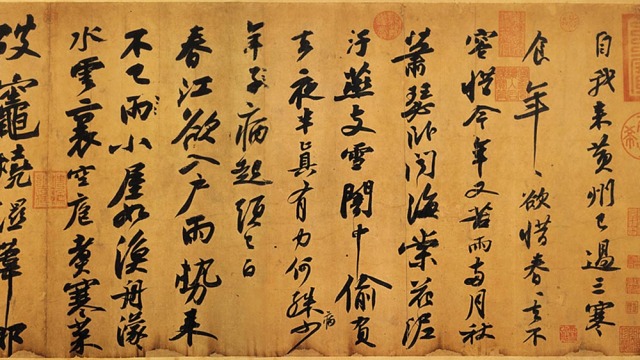 自我来黄州已過三寒
食年〻欲惜春〻去不
容惜今年又苦雨兩月秋
蕭瑟卧聞海棠花泥
汙燕支雪闇中偷負
去夜半真有力何殊病少
年子病起頭已白
春江欲入户雨勢来
不已雨小屋如漁舟濛
水雲裏空庖煮寒菜
破竈燒濕葦那